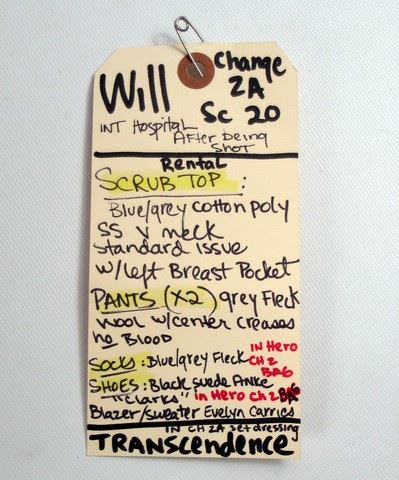 Will Change
2A
Sc 20
INT Hospital
After being
shot
Rental
SCRUB TOP:
Blue/grey cotton poly
SS V neck
standard issue
w/left Breast Pocket
PANTS (X2) grey Fleck
Wool w/center creases
no Blood
IN Hero
Socks: Blue/grey Fleck CH 2
BAG
SHOES: Black suede Ankle
"Clarks" in Hero CH 2 BAG
Blazer/sweater Evelyn Carries
IN CH 2A set dressing
TRANSCENDENCE